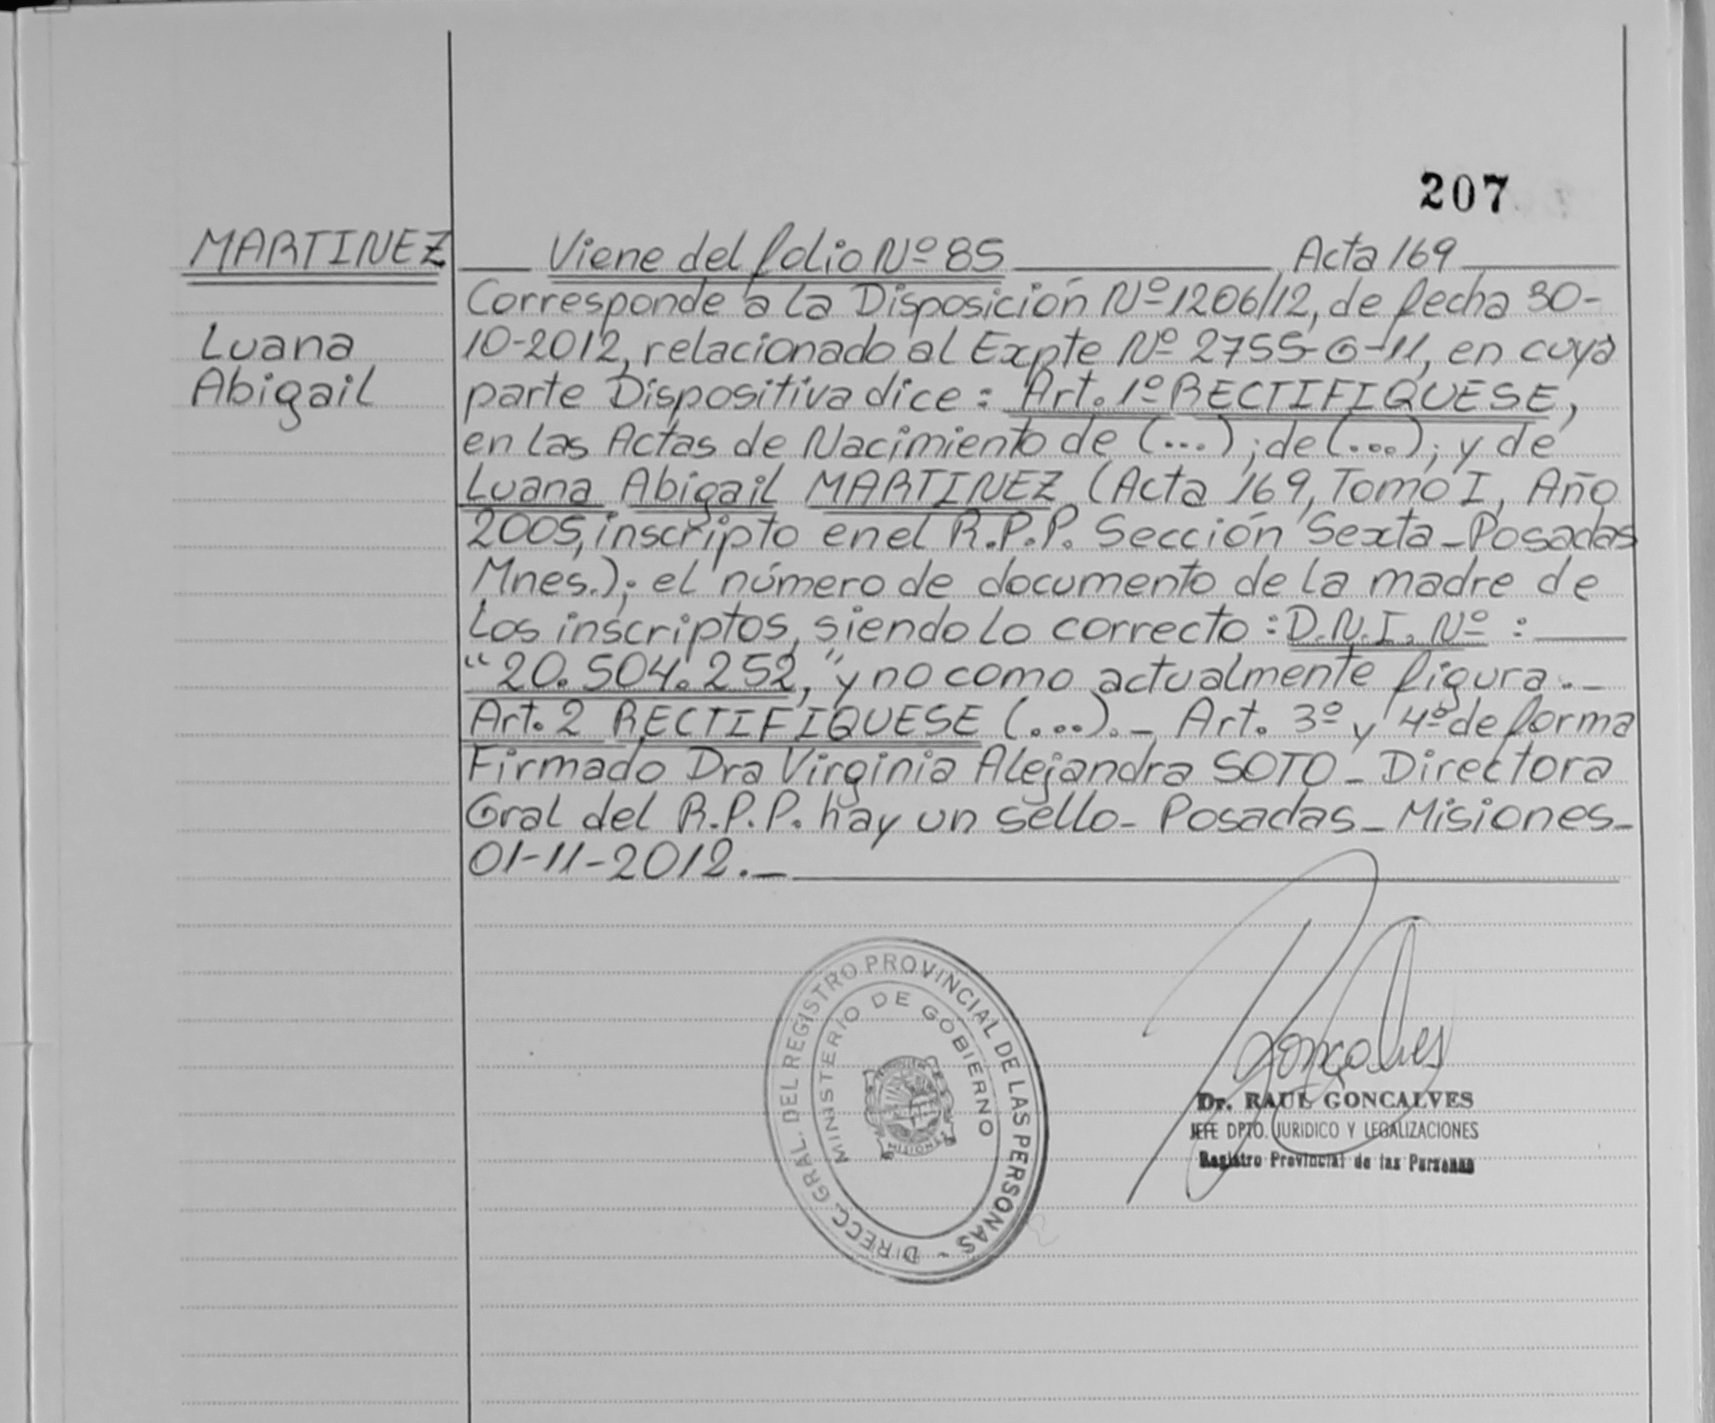 207
MARTINEZ
Luana
Abigail
Viene del folio Nº 85 Acta 169
Corresponde a la Disposición Nº 1206/12, de fecha 30-
10-2012, relacionado al Expte Nº 2755-G-11, en cuya
parte Dispositiva dice: Art. 1º RECTIFIQUESE,
en las Actas de Nacimiento de (...); de (...); y de
Luana Abigail MARTINEZ (Acta 169, Tomo I, Año
2005, inscripto en el R.P.P. Sección Sexta-Posadas
Mnes.); el número de documento de la madre de
los inscriptos, siendo lo correcto: D.N.I. Nº:
"20.504.252," y no como actualmente figura.-
Art. 2 RECTIFIQUESE (....).- Art. 3º y 4º de forma
Firmado Dra Virginia Alejandra SOTO - Directora
Gral del R.P.P. hay un sello- Posadas- Misiones-
01-11-2012.-
DIRECC. GRAL. DEL REGISTRO PROVINCIAL DE LAS PERSONAS -
MINISTERIO DE GOBIERNO
MISIONES
Gonçalves
Dr. RAUL GONCALVES
JEFE DPTO. JURIDICO Y LEGALIZACIONES
Registro Provincial de las Personas